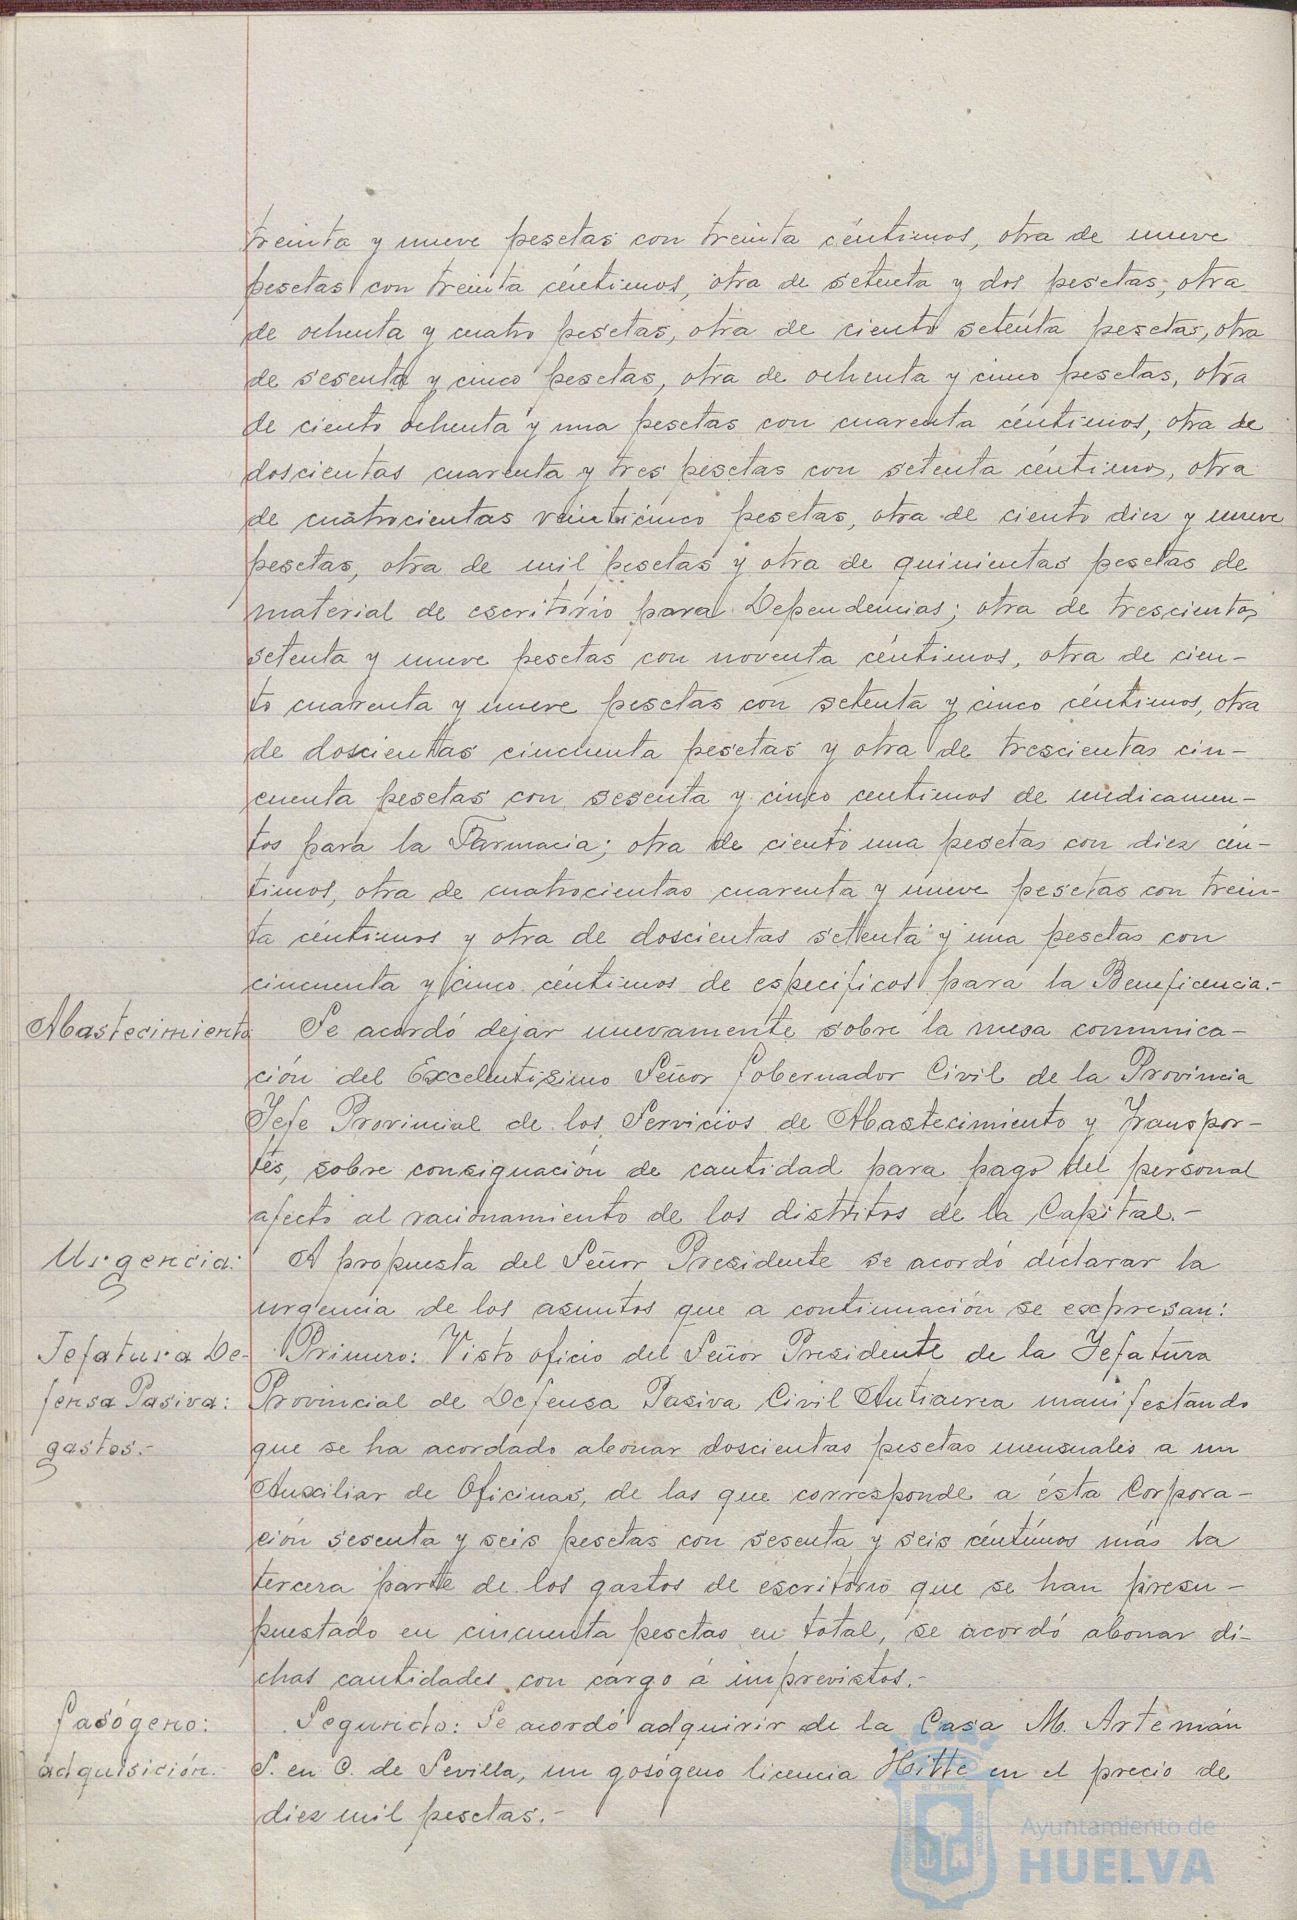 treinta y nueve pesetas con treinta céntimos, otra de nueve
pesetas con treinta céntimos, otra de setenta y dos pesetas, otra
de ochenta y cuatro pesetas, otra de ciento setenta pesetas, otra
de sesenta y cinco pesetas, otra de ochenta y cinco pesetas, otra
de ciento ochenta y una pesetas con cuarenta céntimos, otra de
doscientas cuarenta y tres pesetas con setenta céntimos, otra
de cuatrocientas veinticinco pesetas, otra de ciento diez y nueve
pesetas, otra de mil pesetas y otra de quinientas pesetas de
material de escritorio para Dependencias; otra de trescientas
setenta y nueve pesetas con noventa céntimos, otra de cien-
to cuarenta y nueve pesetas con setenta y cinco céntimos, otra
de doscientas cincuenta pesetas y otra de trescientas cin-
cuenta pesetas con sesenta y cinco centimos de medicamen-
tos para la Farmacia; otra de ciento una pesetas con diez cén-
timos, otra de cuatrocientas cuarenta y nueve pesetas con trein-
ta céntimos y otra de doscientas setenta y una pesetas con
cincuenta y cinco céntimos de especificos para la Beneficencia.-
Abastecimiento Se acordó dejar nuevamente sobre la mesa comunica-
ción del Excelentisimo Señor Gobernador Civil de la Provincia
Jefe Provincial de los Servicios de Abastecimiento y Transpor-
tes, sobre consignación de cantidad para pago del personal
afecto al racionamiento de los distritos de la Capital.-
Urgencia: A propuesta del Señor Presidente se acordó declarar la
urgencia de los asuntos que a continuación se expresan:
Jefatura De- Primero: Visto oficio del Señor Presidente de la Jefatura
fensa Pasiva: Provincial de Defensa Pasiva Civil Antiaerea manifestando
gastos.- que se ha acordado abonar doscientas pesetas mensuales a un
Auxiliar de Oficinas, de las que corresponde a ésta Corpora-
ción sesenta y seis pesetas con sesenta y seis céntimos más la
tercera parte de los gastos de escritorio que se han presu-
puestado en cincuenta pesetas en total, se acordó abonar di-
chas cantidades con cargo á imprevistos.-
Gasógeno: Segundo: Se acordó adquirir de la Casa M. Artemán
adquisición. S. en C. de Sevilla, un gosógeno licencia Hitte en el precio de
diez mil pesetas.-
Ayuntamiento de
HUELVA